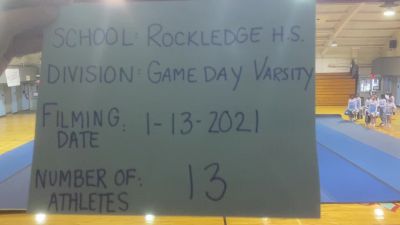 SCHOOL: ROCKLEDGE H.S.
DIVISION: GAME DAY VARSITY
FILMING DATE: 1-13-2021
NUMBER OF ATHLETES: 13